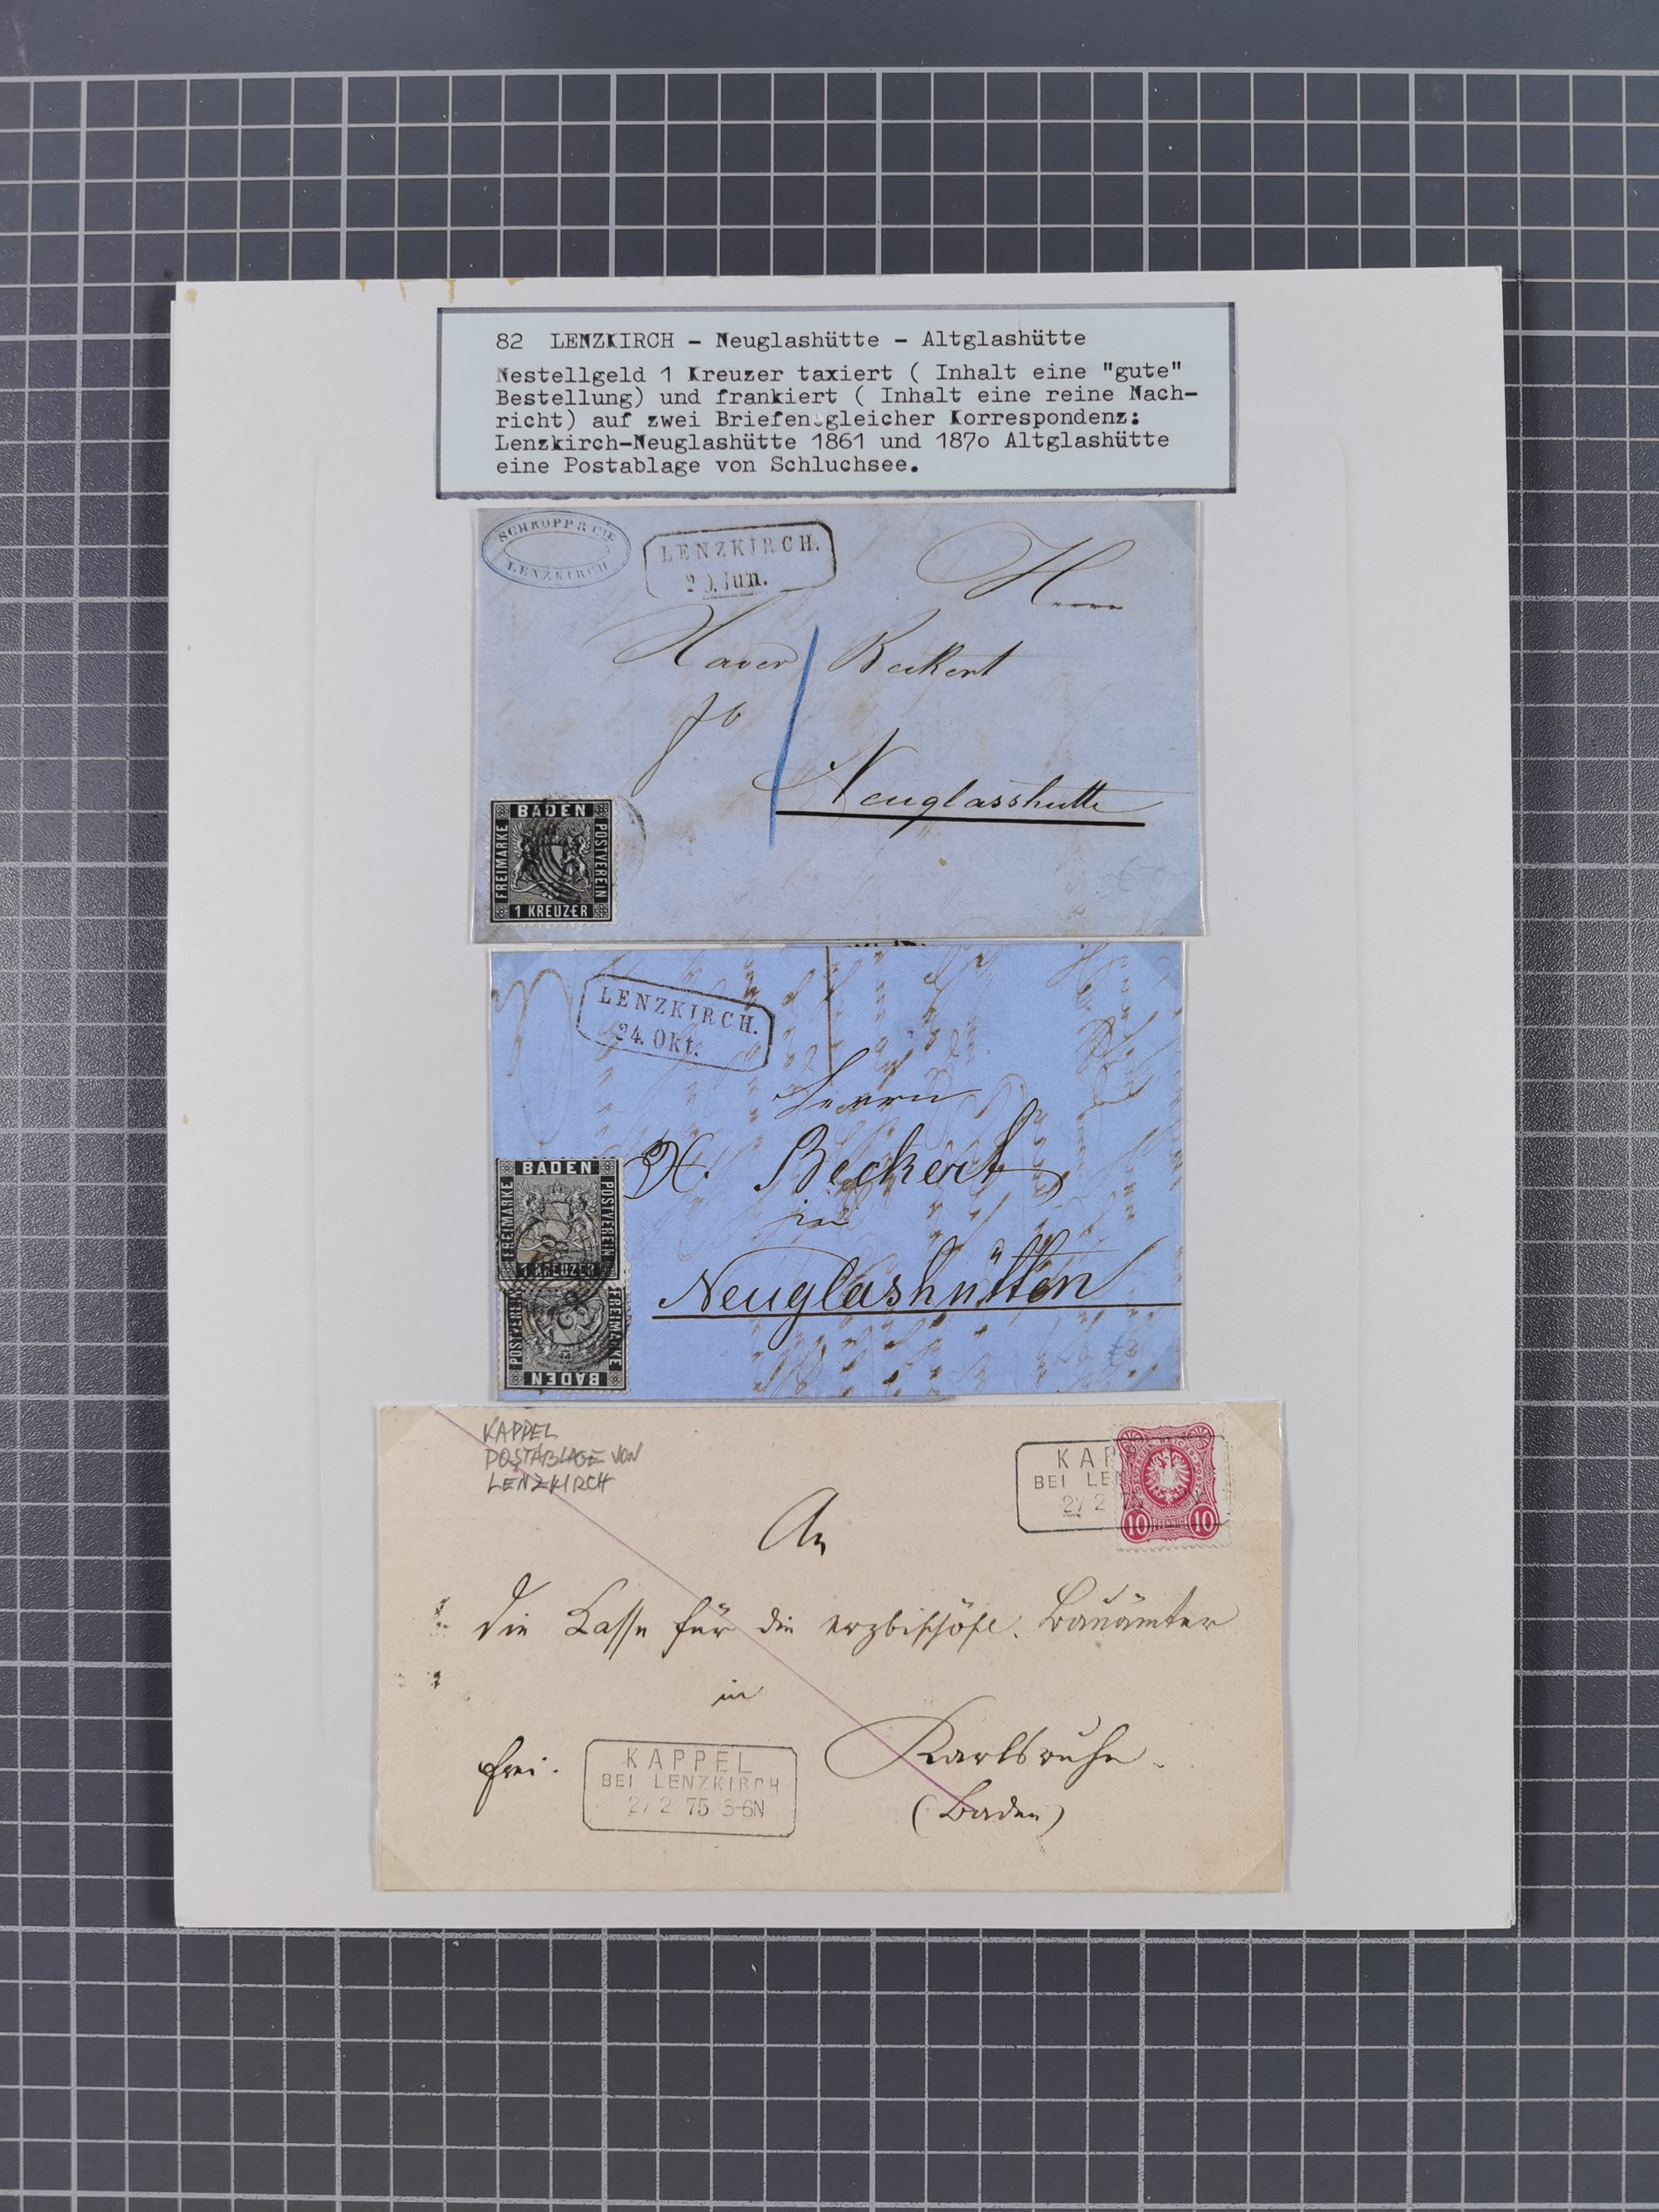 82 LENZKIRCH - Neuglashütte - Altglashütte
Nestellgeld 1 Kreuzer taxiert ( Inhalt eine "gute"
Bestellung) und frankiert ( Inhalt eine reine Nach-
richt) auf zwei Briefen gleicher Korrespondenz:
Lenzkirch-Neuglashütte 1861 und 187o Altglashütte
eine Postablage von Schluchsee.
SCHROPP & CIE
LENZKIRCH
LENZKIRCH.
20. Jun.
Herrn
Xaver Beckert
Neuglasshutte
BADEN
FREIMARKE
POSTVEREIN
1 KREUZER
LENZKIRCH.
24. Okt.
Herrn
X. Beckert
in
Neuglashütten
BADEN
FREIMARKE
POSTVEREIN
1 KREUZER
POSTVEREIN
FREIMARKE
BADEN
KAPPEL
POSTABLAGE VON
LENZKIRCH
KAP
BEI LEN
2 75
10 PFENNIGE 10
An
die Casse für die erzbischöfl. Bauämter
in
frei. Karlsruhe.
(Baden)
KAPPEL
BEI LENZKIRCH
2 75 5-6N